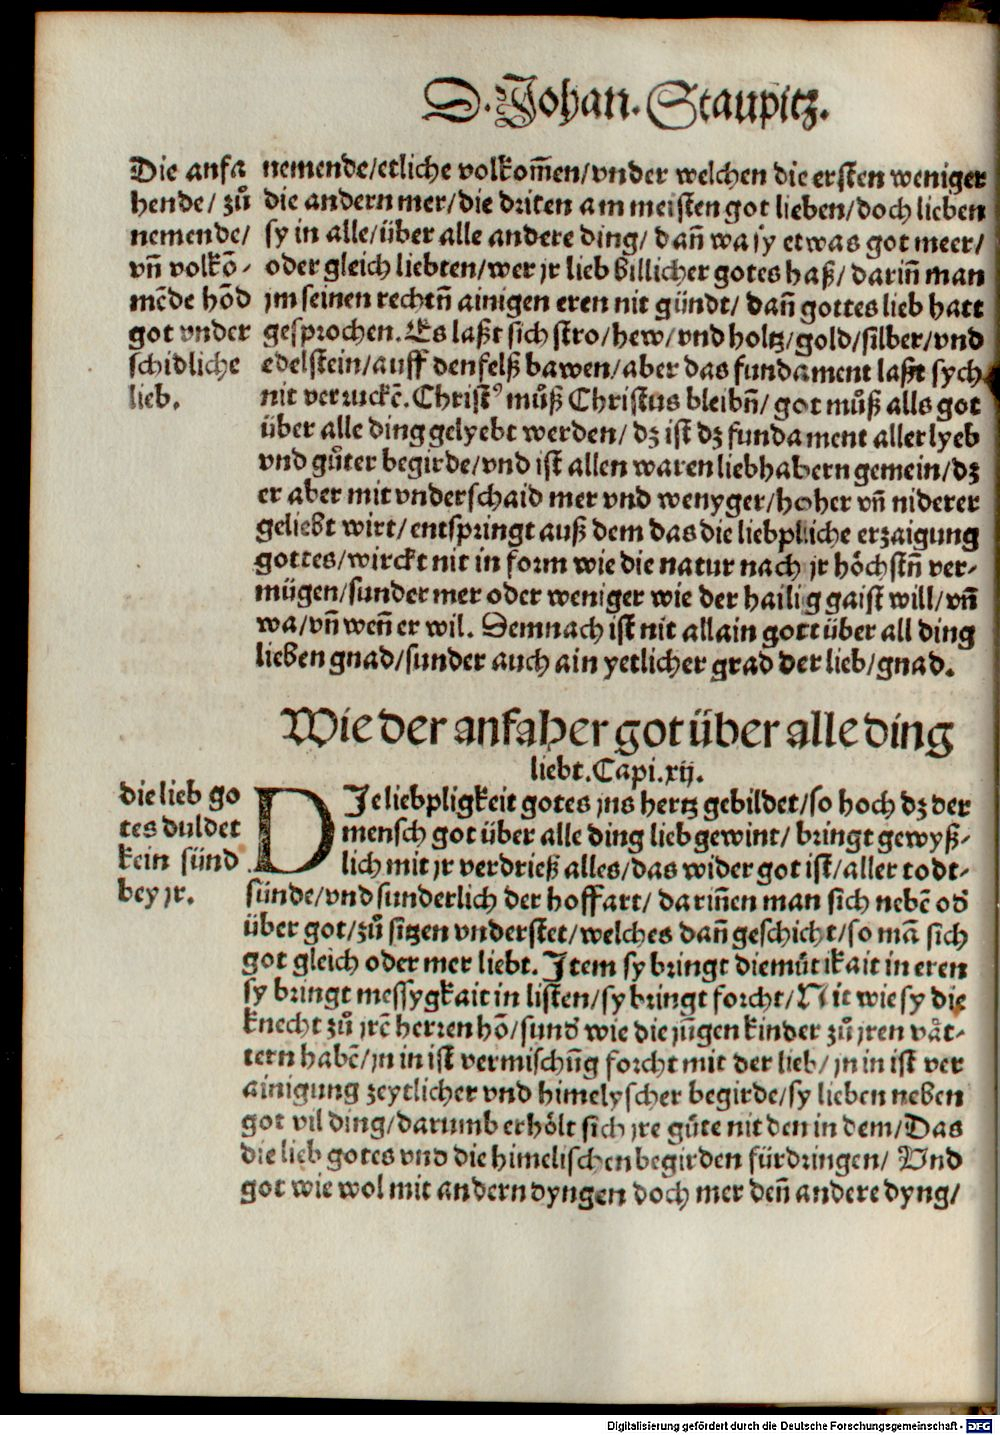 D. Johan. Staupitz.
Die anfa
hende/ zů
nemende/
vñ volkō-
mēde hōd
got vnder
schidliche
lieb.
nemende/etliche volkom̄en/vnder welchen die ersten weniger
die andern mer/die driten am meisten got lieben/doch lieben
sy in alle/über alle andere ding/ dañ wa sy etwas got meer/
oder gleich liebten/wer jr lieb billicher gotes haß/ dariñ man
jm seinen rechtñ ainigen eren nit gündt/ dañ gottes lieb hatt
gesprochen. Es laßt sich stro/hew/vnd holtz/gold/silber/vnd
edelstein/auff den felß bawen/aber das fundament laßt sych
nit verruckē. Christꝰ můß Christus bleibñ/ got můß alls got
über alle ding gelyebt werden/ dz ist dz fundament aller lyeb
vnd gůter begirde/vnd ist allen waren liebhabern gemein/dz
er aber mit vnderschaid mer vnd wenyger/hoher vñ niderer
geliebt wirt/entspringt auß dem das die liebpliche erzaigung
gottes/wirckt nit in form wie die natur nach jr höchstñ ver-
mügen/sunder mer oder weniger wie der hailig gaist will/vñ
wa/vñ weñ er wil. Demnach ist nit allain gott über all ding
lieben gnad/sunder auch ain yetlicher grad der lieb/gnad.
Wie der anfaher got über alle ding
liebt. Capi. xij.
die lieb go
tes duldet
kein sünd
bey jr.
DJe liebpligkeit gotes jns hertz gebildet/so hoch dz der
mensch got über alle ding lieb gewint/ bringt gewyß-
lich mit jr verdrieß alles/das wider got ist/aller todt-
sünde/vnd sunderlich der hoffart/ dariñen man sich nebē od'
über got/zů sitzen vnderstet/welches dañ geschicht/so mā sich
got gleich oder mer liebt. Jtem sy bringt diemůtikait in eren
sy bringt messygkait in listen/sy bringt forcht/Nit wie sy die
knecht zů jrē herren hō/sund' wie die jūgen kinder zů jren våt-
tern habē/jn in ist vermischūg forcht mit der lieb/ jn in ist ver
ainigung zeytlicher vnd himelyscher begirde/sy lieben neben
got vil ding/darumb erhölt sich jre gůte nit den in dem/Das
die lieb gotes vnd die himelischen begirden fürdringen/ Vnd
got wie wol mit andern dyngen doch mer deñ andere dyng/
Digitalisierung gefördert durch die Deutsche Forschungsgemeinschaft - DFG